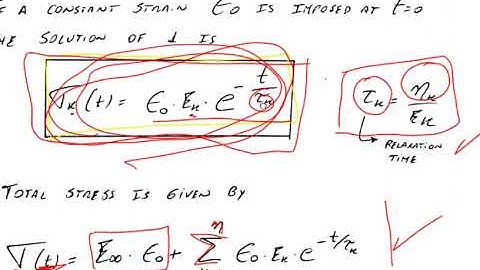 F A CONSTANT STRAIN ϵ₀ IS IMPOSED AT t=0
HE SOLUTION OF 1 IS
σₖ(t) = ϵ₀ · Eₖ · e^(-t/τₖ)
τₖ = ηₖ/Eₖ
RELAXATION
TIME
TOTAL STRESS IS GIVEN BY
σ(t) = E∞ · ϵ₀ + Σⁿ ϵ₀ · Eₖ · e^(-t/τₖ)